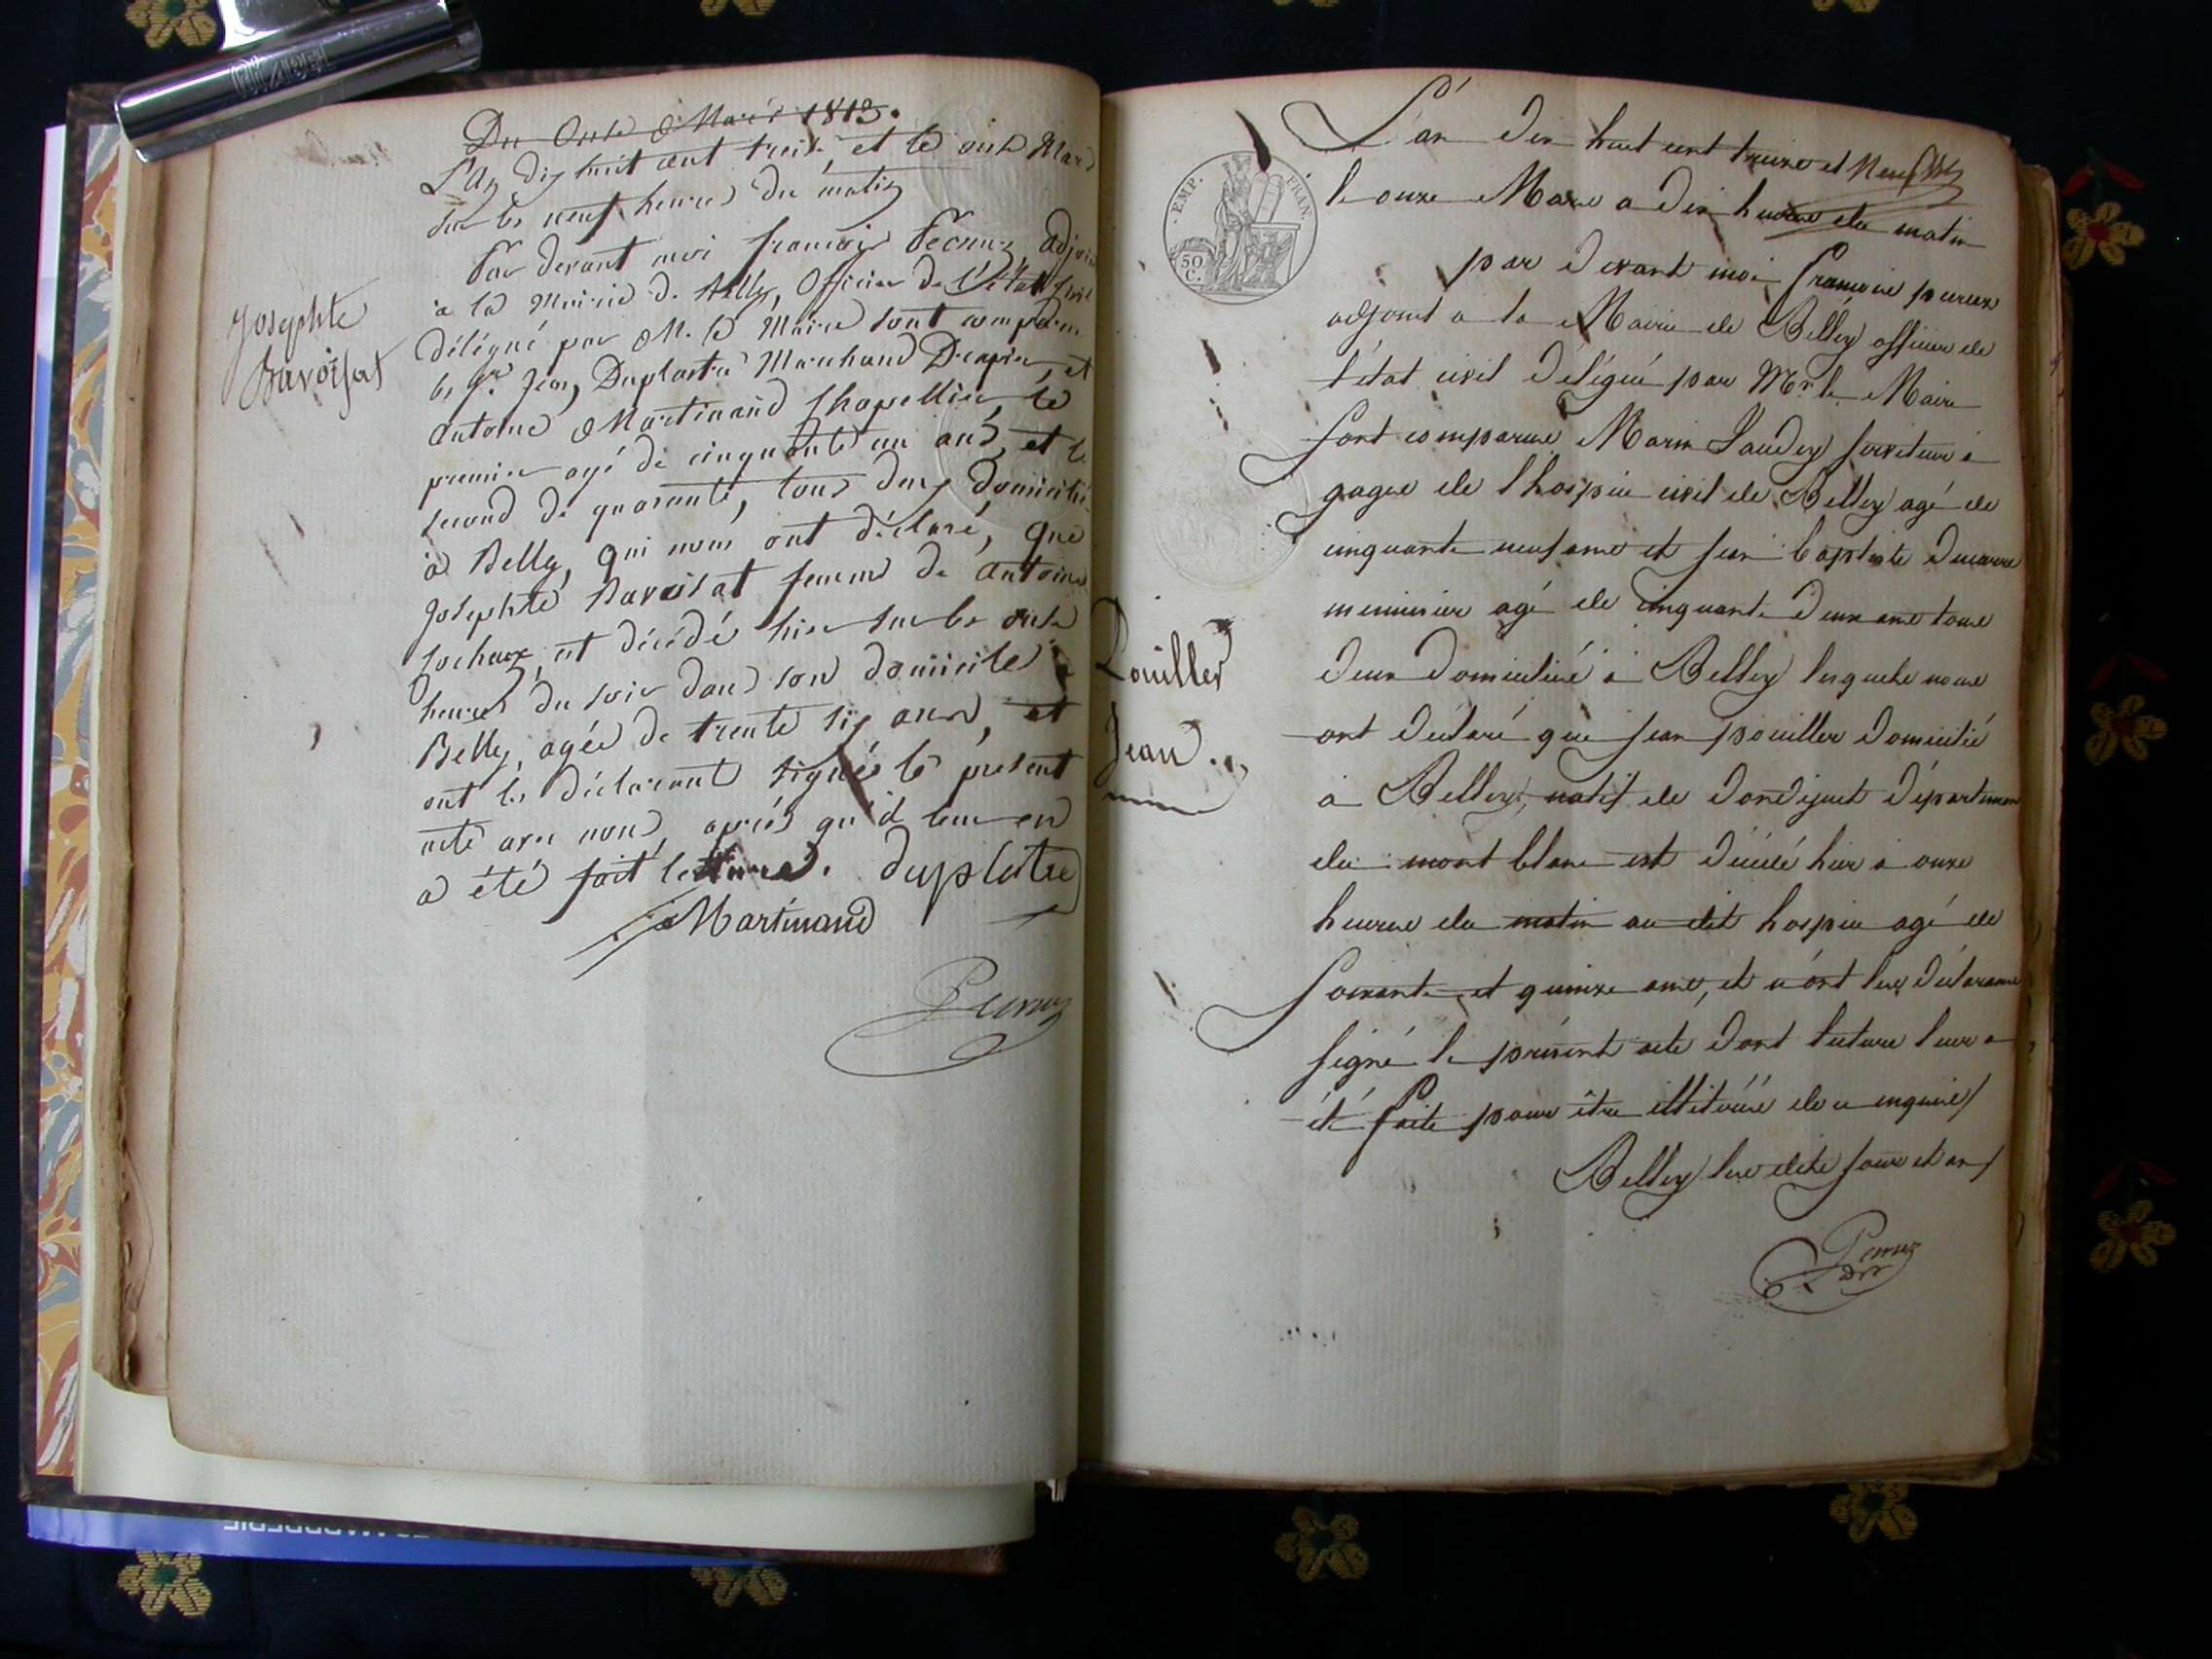 Du Onze Mars 1813.
L'An dix huit cent treize et le onze Mars
sur les neuf heures du matin
Par devant moi françois Adjoint
à la Mairie de Belley, Officier de L'état Civil
délégué par M. le Maire sont comparus
les Srs. Jean Duplastre Marchand Drapier, et
Antoine Martinand Chapellier, le
premier agé de cinquante un ans, et le
second de quarante, tous deux domiciliés
à Belley, qui nous ont déclaré, que
Josephte Bavoisat femme de Antoine
est décédé hier sur les onze
heures du soir dans son domicile à
Belley, agée de trente six ans, et
ont les déclarant signés le présent
acte avec nous, après qu'il leur en
a été fait lecture. duplatre
Martinand
Josephte
Bavoisat
L'an dix huit cent treize et
le onze Mars a dix heures du matin
par devant moi francois
adjoint a la Mairie de Belley officier de
l'état civil délégué par Mr. le Maire
sont comparus Marin Laudey serviteur à
gages de l'hospice civil de Belley agé de
cinquante neuf ans et jean baptiste Ducarre
menuisier agé de cinquante deux ans tous
deux domiciliés à Belley lesquels nous
ont déclaré que jean pouiller domicilié
à Belley, natif de département
du mont blanc est décédé hier à onze
heures du matin au dit hospice agé de
soixante et quinze ans, et n'ont les déclarans
signé le présent acte dont lecture leur a
été faite pour être illitérés de ce enquis
Belley les dits jour et an
Pouiller
Jean.
EMP. FRAN.
50
C.